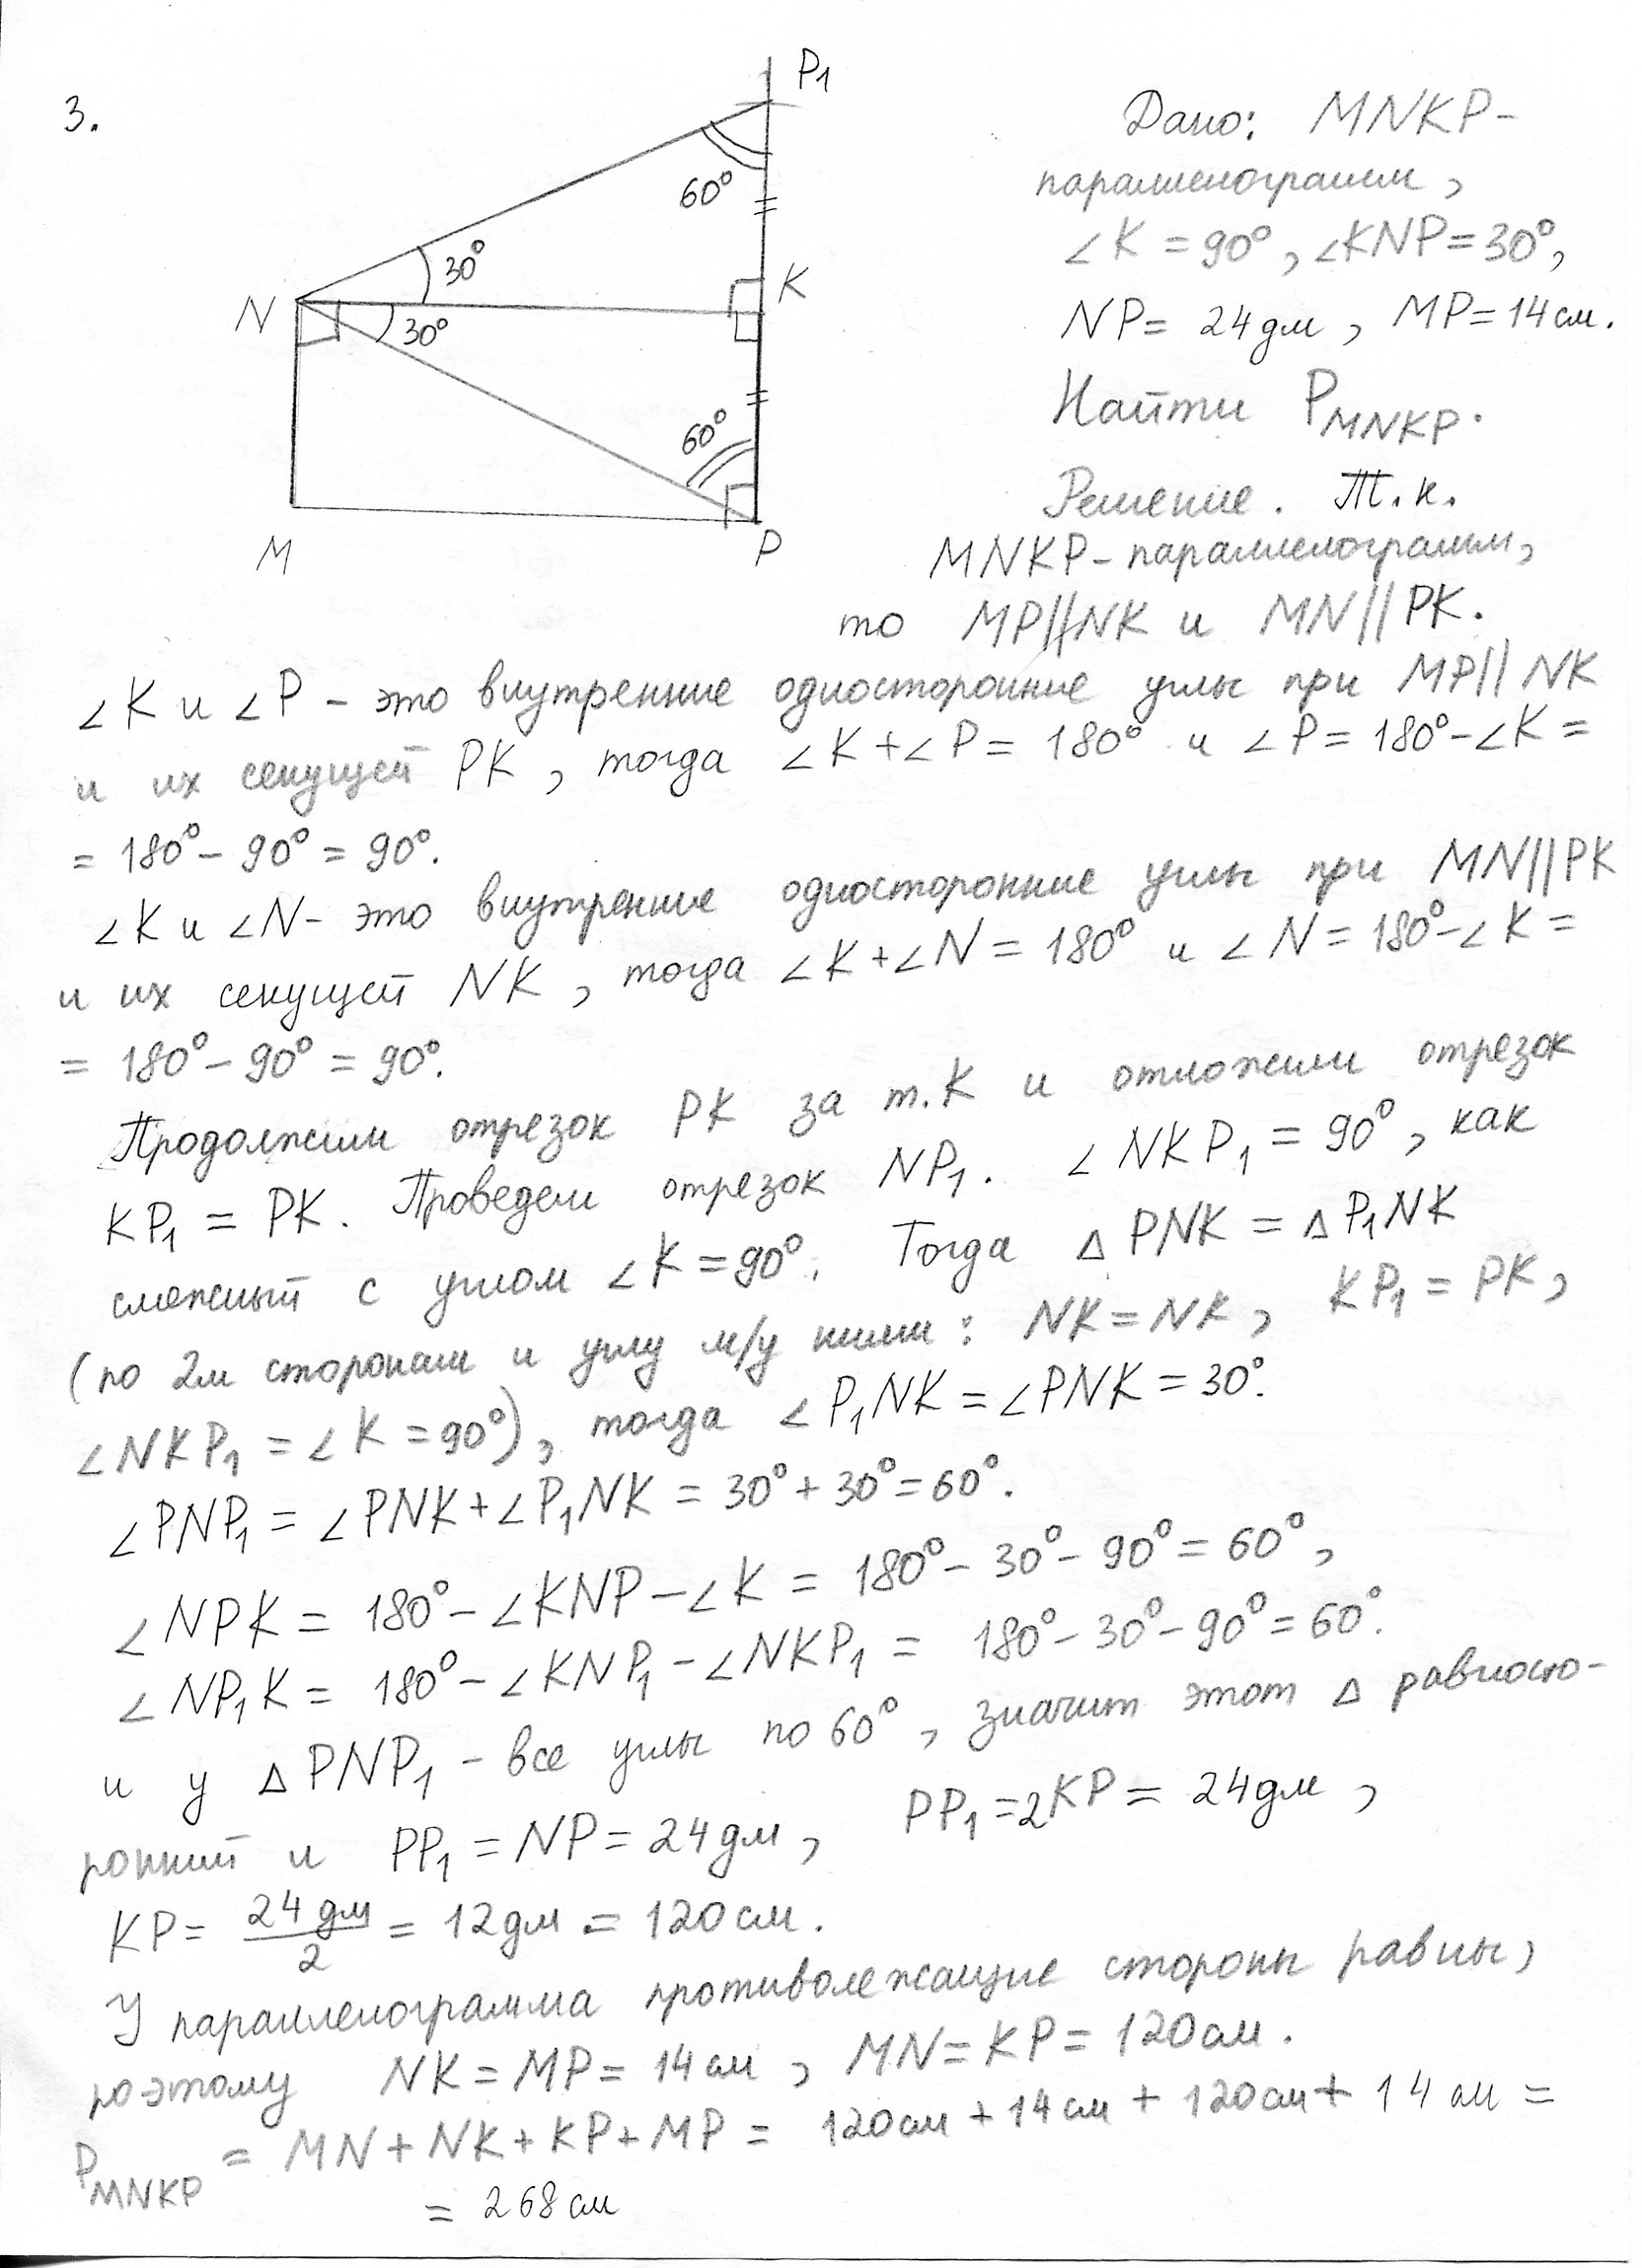 3.
P1
60°
30°
N
K
30°
60°
M
P
Дано: MNKP-
параллелограмм,
∠K = 90°, ∠KNP = 30°,
NP = 24 дм, MP = 14 см.
Найти P MNKP.
Решение. Т.к.
MNKP - параллелограмм,
то MP || NK и MN || PK.
∠K и ∠P - это внутренние односторонние углы при MP || NK
и их секущей PK, тогда ∠K + ∠P = 180° и ∠P = 180° - ∠K =
= 180° - 90° = 90°.
∠K и ∠N - это внутренние односторонние углы при MN || PK
и их секущей NK, тогда ∠K + ∠N = 180° и ∠N = 180° - ∠K =
= 180° - 90° = 90°.
Продолжим отрезок PK за т. K и отложим отрезок
KP1 = PK. Проведем отрезок NP1. ∠NKP1 = 90°, как
смежный с углом ∠K = 90°. Тогда Δ PNK = Δ P1NK
(по 2м сторонам и углу м/у ними: NK = NK, KP1 = PK,
∠NKP1 = ∠K = 90°), тогда ∠P1NK = ∠PNK = 30°.
∠PNP1 = ∠PNK + ∠P1NK = 30° + 30° = 60°.
∠NPK = 180° - ∠KNP - ∠K = 180° - 30° - 90° = 60°,
∠NP1K = 180° - ∠KNP1 - ∠NKP1 = 180° - 30° - 90° = 60°.
и у Δ PNP1 - все углы по 60°, значит этот Δ равносто-
ронний и PP1 = NP = 24 дм, PP1 = 2KP = 24 дм,
KP = 24 дм / 2 = 12 дм = 120 см.
У параллелограмма противолежащие стороны равны,
поэтому NK = MP = 14 см, MN = KP = 120 см.
P MNKP = MN + NK + KP + MP = 120 см + 14 см + 120 см + 14 см =
= 268 см